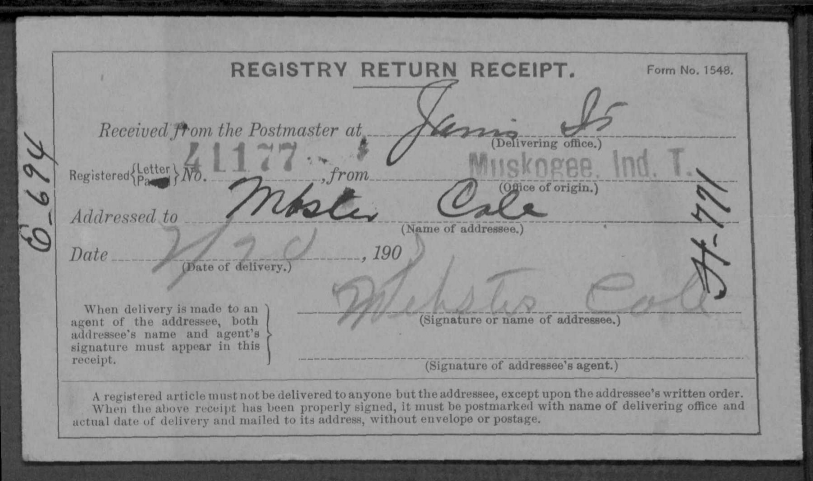 REGISTRY RETURN RECEIPT.
Form No. 1548.
Received from the Postmaster at
(Delivering office.)
Registered {Letter } No. 41177 , from Muskogee, Ind. T.
(Office of origin.)
Addressed to Webster Cole
(Name of addressee.)
Date 2/20 , 190
(Date of delivery.)
Webster Cole
(Signature or name of addressee.)
When delivery is made to an
agent of the addressee, both
addressee's name and agent's
signature must appear in this
receipt.
(Signature of addressee's agent.)
A registered article must not be delivered to anyone but the addressee, except upon the addressee's written order.
When the above receipt has been properly signed, it must be postmarked with name of delivering office and
actual date of delivery and mailed to its address, without envelope or postage.
6-694